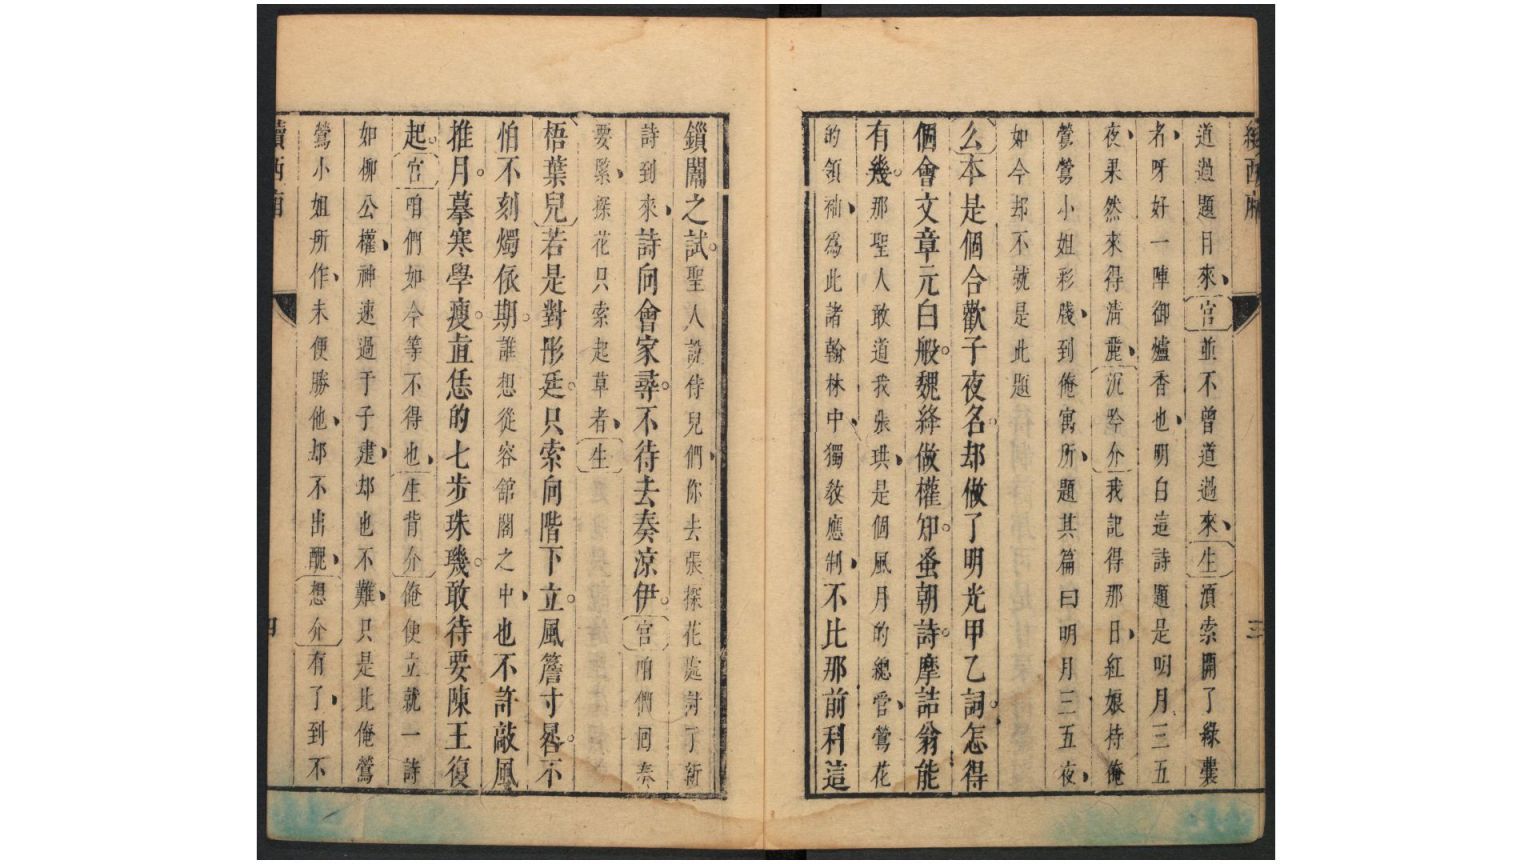 續西廂
三
道過題目來宫並不曾道過來生須索開了綠囊
看呀好一陣御爐香也明白這詩題是明月三五
夜果然來得淸麗沉吟介我記得那日紅娘持俺
鶯鶯小姐彩牋到俺寓所題其篇曰明月三五夜
如今却不就是此題
么本是個合歡子夜名却做了明光甲乙詞怎得
個會文章元白般魏絳做權知蚤朝詩摩詰翁能
有幾那聖人敢道我張珙是個風月的總管鶯花
的領袖爲此諸翰林中獨敎應制不比那前科這
鎻闈之試聖人說侍兒們你去張探花處討了新
詩到來詩向會家尋不待去奏凉伊宫咱們囘奏
要緊探花只索起草者生
梧葉兒若是對彤廷只索向階下立風簷寸晷不
怕不刻燭依期誰想從容舘閣之中也不許敲風
推月摹寒學瘦直恁的七步珠璣敢待要陳王復
起宫咱們如今等不得也生背介俺便立就一詩
如柳公權神速過于子建却也不難只是比俺鶯
鶯小姐所作未便勝他却不出醜想介有了到不
續西廂
四